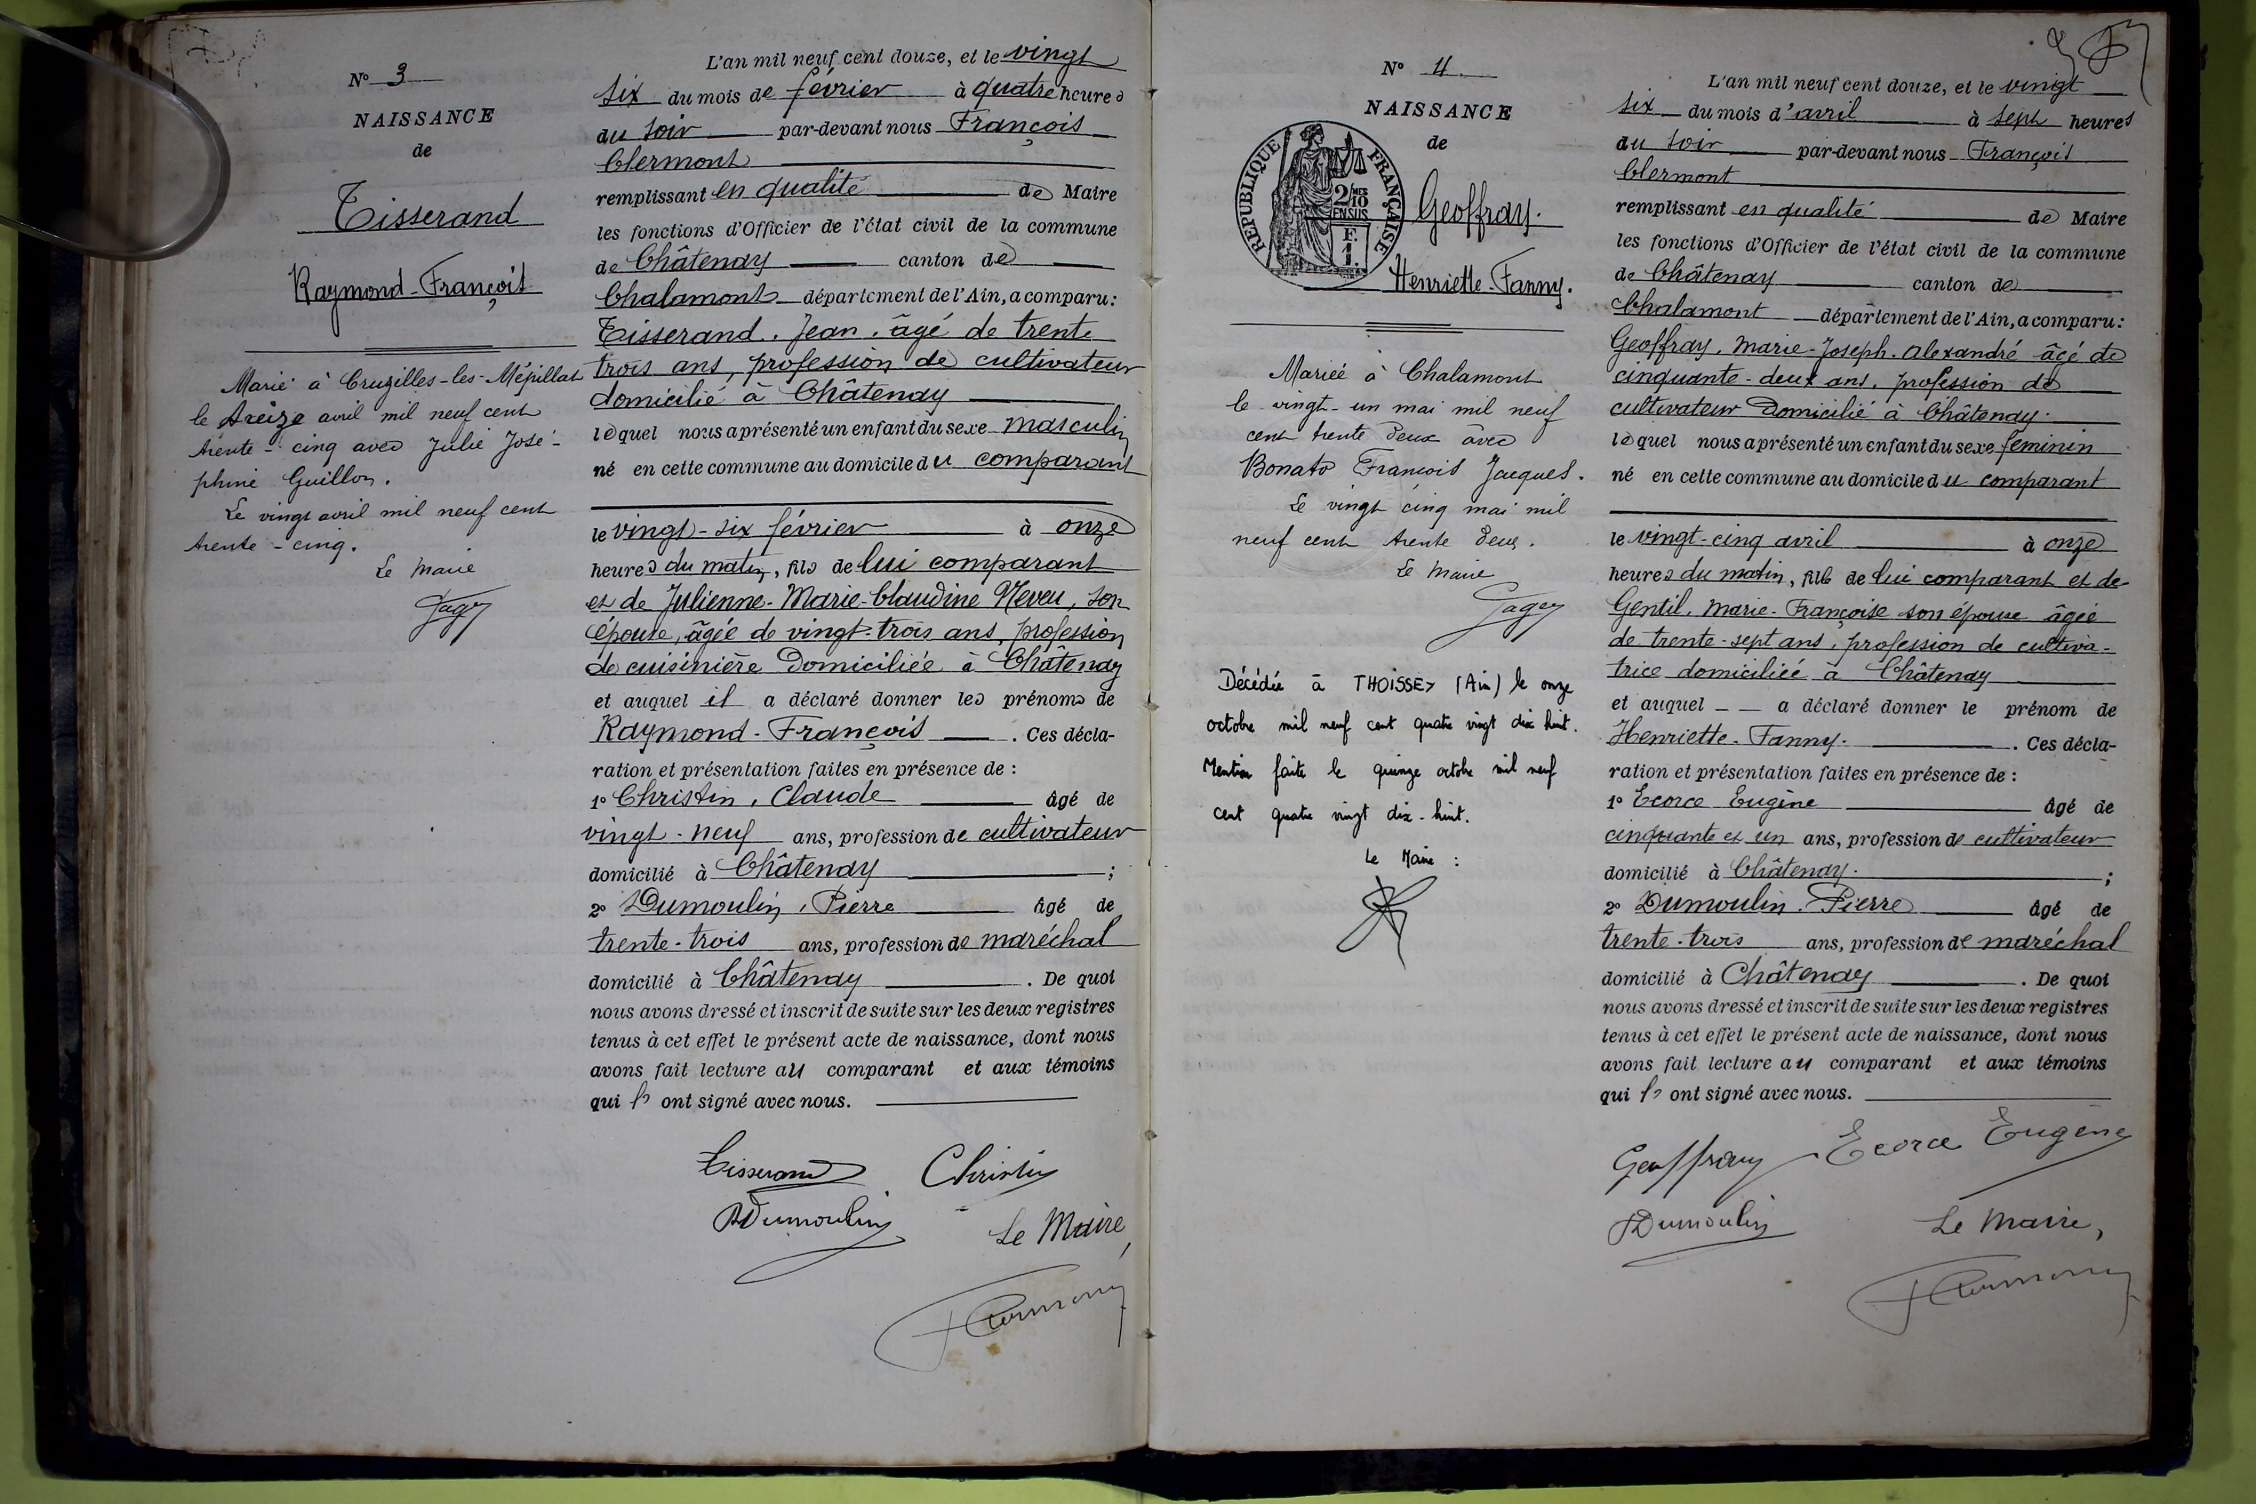 N° 3
NAISSANCE
de
Tisserand
Raymond-François
Marié à Cruzilles-les-Mépillat
le treize avril mil neuf cent
trente-cinq avec Julie José-
phine Guillon.
Le vingt avril mil neuf cent
trente-cinq.
Le Maire
L'an mil neuf cent douze, et le vingt
six du mois de février à quatre heures
du soir par-devant nous François
Clermont
remplissant en qualité de Maire
les fonctions d'Officier de l'état civil de la commune
de Châtenay canton de
Chalamont département de l'Ain, a comparu:
Tisserand. Jean. âgé de trente
trois ans, profession de cultivateur
domicilié à Châtenay
lequel nous a présenté un enfant du sexe masculin
né en cette commune au domicile du comparant
le vingt-six février à onze
heures du matin, fils de lui comparant
et de Julienne-Marie-Claudine Neveu, son
épouse, âgée de vingt-trois ans, profession
de cuisinière Domiciliée à Châtenay
et auquel il a déclaré donner les prénoms de
Raymond-François. Ces décla-
ration et présentation faites en présence de :
1° Christin, Claude âgé de
vingt-neuf ans, profession de cultivateur
domicilié à Châtenay ;
2° Dumoulin, Pierre âgé de
trente-trois ans, profession de maréchal
domicilié à Châtenay. De quoi
nous avons dressé et inscrit de suite sur les deux registres
tenus à cet effet le présent acte de naissance, dont nous
avons fait lecture au comparant et aux témoins
qui ls ont signé avec nous.
Tisserand Christin
PDumoulin Le Maire,
FClermont
N° 4
NAISSANCE
de
RÉPUBLIQUE FRANÇAISE
2/10 MES
EN SUS
F.
1.
Geoffray.
Henriette-Fanny.
Mariée à Chalamont
le vingt-un mai mil neuf
cent trente deux avec
Bonato François Jacques.
Le vingt cinq mai mil
neuf cent trente deux.
Le Maire
Décédée à THOISSEY (Ain) le onze
octobre mil neuf cent quatre vingt dix huit.
Mention faite le quinze octobre mil neuf
cent quatre vingt dix-huit.
Le Maire :
L'an mil neuf cent douze, et le vingt
six du mois d'avril à sept heures
du soir par-devant nous François
Clermont
remplissant en qualité de Maire
les fonctions d'Officier de l'état civil de la commune
de Châtenay canton de
Chalamont département de l'Ain, a comparu:
Geoffray. Marie-Joseph. Alexandré âgé de
cinquante-deux ans, profession de
cultivateur Domicilié à Châtenay.
lequel nous a présenté un enfant du sexe féminin
né en cette commune au domicile du comparant
le vingt-cinq avril à onze
heures du matin, fille de lui comparant et de
Gentil. Marie-Françoise son épouse âgée
de trente-sept ans, profession de cultiva-
trice domiciliée à Châtenay
et auquel a déclaré donner le prénom de
Henriette-Fanny. Ces décla-
ration et présentation faites en présence de :
1° Ecorce Eugène âgé de
cinquante et un ans, profession de cultivateur
domicilié à Châtenay. ;
2° Dumoulin. Pierre âgé de
trente-trois ans, profession de maréchal
domicilié à Châtenay. De quoi
nous avons dressé et inscrit de suite sur les deux registres
tenus à cet effet le présent acte de naissance, dont nous
avons fait lecture au comparant et aux témoins
qui ls ont signé avec nous.
Geoffray Ecorce Eugène
PDumoulin Le Maire,
FClermont